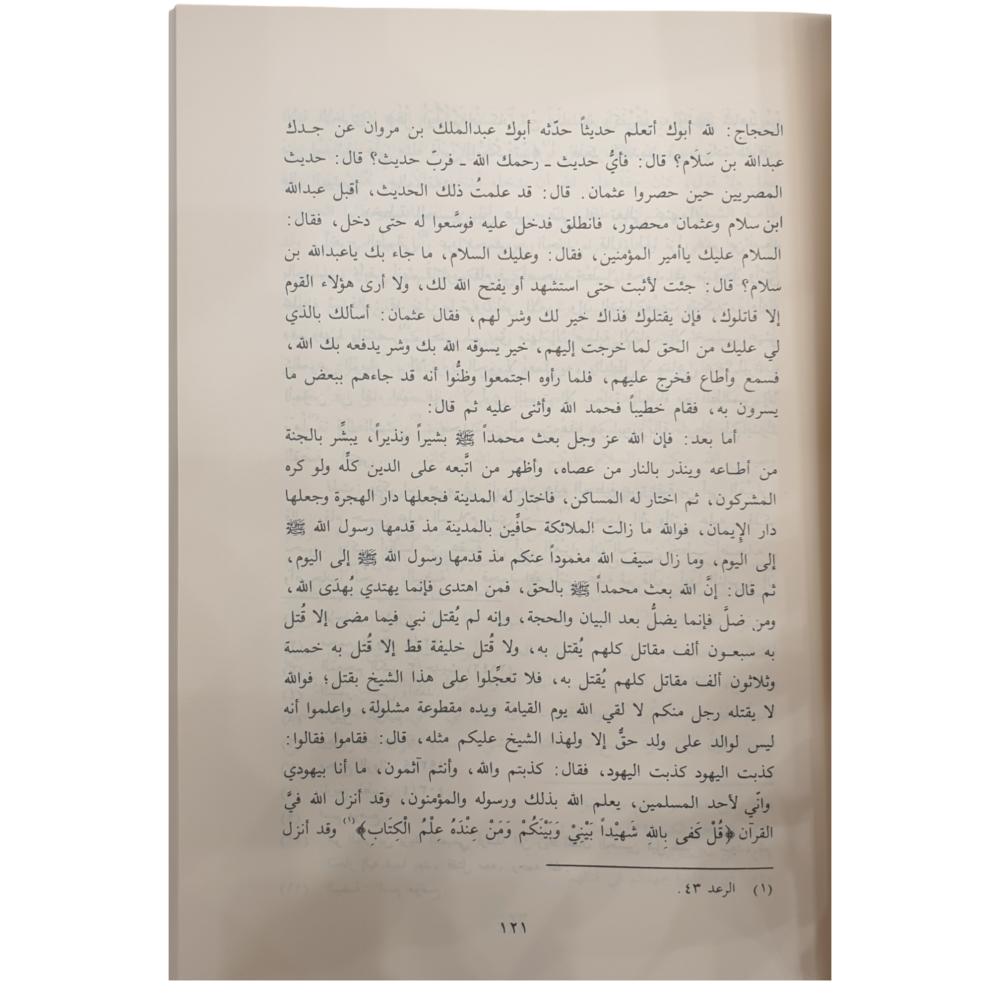 الحجاج: لله أبوك أتعلم حديثاً حدّثه أبوك عبدالملك بن مروان عن جدك
عبدالله بن سَلَام؟ قال: فأيُّ حديث ـ رحمك الله ـ فربّ حديث؟ قال: حديث
المصريين حين حصروا عثمان. قال: قد علمتُ ذلك الحديث، أقبل عبدالله
ابن سلام وعثمان محصور، فانطلق فدخل عليه فوسَّعوا له حتى دخل، فقال:
السلام عليك ياأمير المؤمنين، فقال: وعليك السلام، ما جاء بك ياعبدالله بن
سلام؟ قال: جئت لأثبت حتى استشهد أو يفتح الله لك، ولا أرى هؤلاء القوم
إلا قاتلوك، فإن يقتلوك فذاك خير لك وشر لهم، فقال عثمان: أسألك بالذي
لي عليك من الحق لما خرجت إليهم، خير يسوقه الله بك وشر يدفعه بك الله،
فسمع وأطاع فخرج عليهم، فلما رأوه اجتمعوا وظنُّوا أنه قد جاءهم ببعض ما
يسرون به، فقام خطيباً فحمد الله وأثنى عليه ثم قال:
أما بعد: فإن الله عز وجل بعث محمداً ﷺ بشيراً ونذيراً، يبشِّر بالجنة
من أطـاعه وينذر بالنار من عصاه، وأظهر من اتَّبعه على الدين كلِّه ولو كره
المشركون، ثم اختار له المساكن، فاختار له المدينة فجعلها دار الهجرة وجعلها
دار الإِيمان، فوالله ما زالت الملائكة حافِّين بالمدينة مذ قدمها رسول الله ﷺ
إلى اليوم، وما زال سيف الله مغموداً عنكم مذ قدمها رسول الله ﷺ إلى اليوم،
ثم قال: إنَّ الله بعث محمداً ﷺ بالحق، فمن اهتدى فإنما يهتدي بُهدَى الله،
ومن ضلَّ فإنما يضلُّ بعد البيان والحجة، وإنه لم يُقتل نبي فيما مضى إلا قُتل
به سبعـون ألف مقاتل كلهم يُقتل به، ولا قُتل خليفة قط إلا قُتل به خمسة
وثلاثون ألف مقاتل كلهم يُقتل به، فلا تعجِّلوا على هذا الشيخ بقتل؛ فوالله
لا يقتله رجل منكم لا لقي الله يوم القيامة ويده مقطوعة مشلولة، واعلموا أنه
ليس لوالد على ولد حقٌّ إلا ولهذا الشيخ عليكم مثله، قال: فقاموا فقالوا:
كذبت اليهود كذبت اليهود، فقال: كذبتم والله، وأنتم آثمون، ما أنا بيهودي
وانّي لأحد المسلمين، يعلم الله بذلك ورسوله والمؤمنون، وقد أنزل الله فيَّ
القرآن ﴿قُلْ كَفى بِاللهِ شَهِيْداً بَيْنِيْ وَبَيْنَكُمْ وَمَنْ عِنْدَهُ عِلْمُ الْكِتَابِ﴾(١) وقد أنزل
(١) الرعد ٤٣.
١٢١